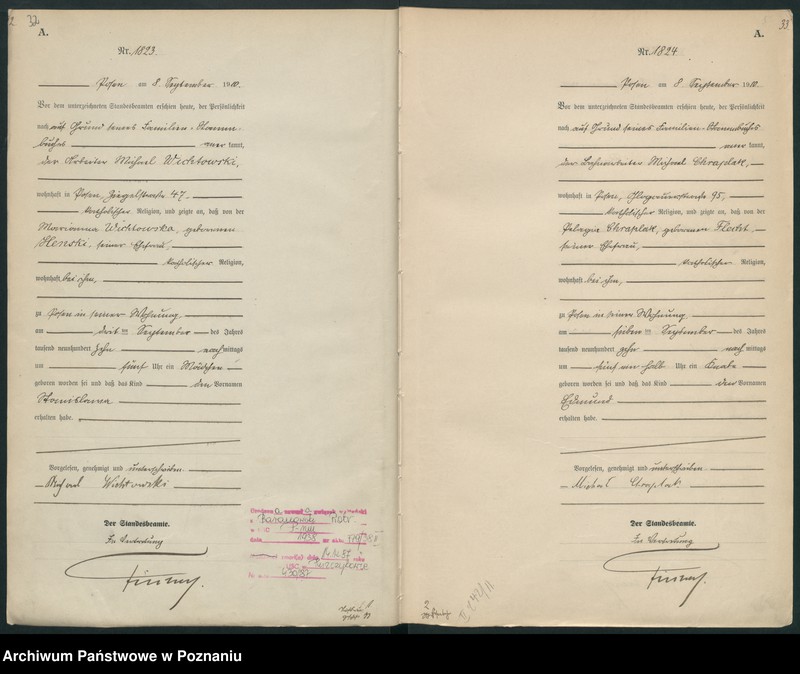 32
A.
Nr. 1823.
Posen am 8. September 1910.
Vor dem unterzeichneten Standesbeamten erschien heute, der Persönlichkeit
nach auf Grund seines Familien-Stamm-
buches kannt,
der Arbeiter Michael Wichtowski,
wohnhaft in Posen, Ziegelstraße 47,
katholischer Religion, und zeigte an, daß von der
Marianna Wichtowska, geborenen
seiner Ehefrau,
katholischer Religion,
wohnhaft bei ihm,
zu Posen in seiner Wohnung
am September des Jahres
tausend neunhundert zehn nachmittags
um fünf Uhr ein Mädchen
geboren worden sei und daß das Kind den Vornamen
Stanislawa
erhalten habe.
Vorgelesen, genehmigt und unterschrieben
Michael Wichtowski
Der Standesbeamte.
In Vertretung
33
A.
Nr. 1824.
Posen am 8. September 1910.
Vor dem unterzeichneten Standesbeamten erschien heute, der Persönlichkeit
nach auf Grund seines Familien-Stammbuches
kannt,
der Bahnarbeiter Michael Chraplak,
wohnhaft in Posen, Glogauerstraße 95,
katholischer Religion, und zeigte an, daß von der
Pelagia Chraplak, geborenen
seiner Ehefrau,
katholischer Religion,
wohnhaft bei ihm,
zu Posen in seiner Wohnung
am sieben ten September des Jahres
tausend neunhundert zehn nachmittags
um Uhr ein Knabe
geboren worden sei und daß das Kind den Vornamen
Edmund
erhalten habe.
Vorgelesen, genehmigt und unterschrieben
Michał Chraplak
Der Standesbeamte.
In Vertretung
Archiwum Państwowe w Poznaniu